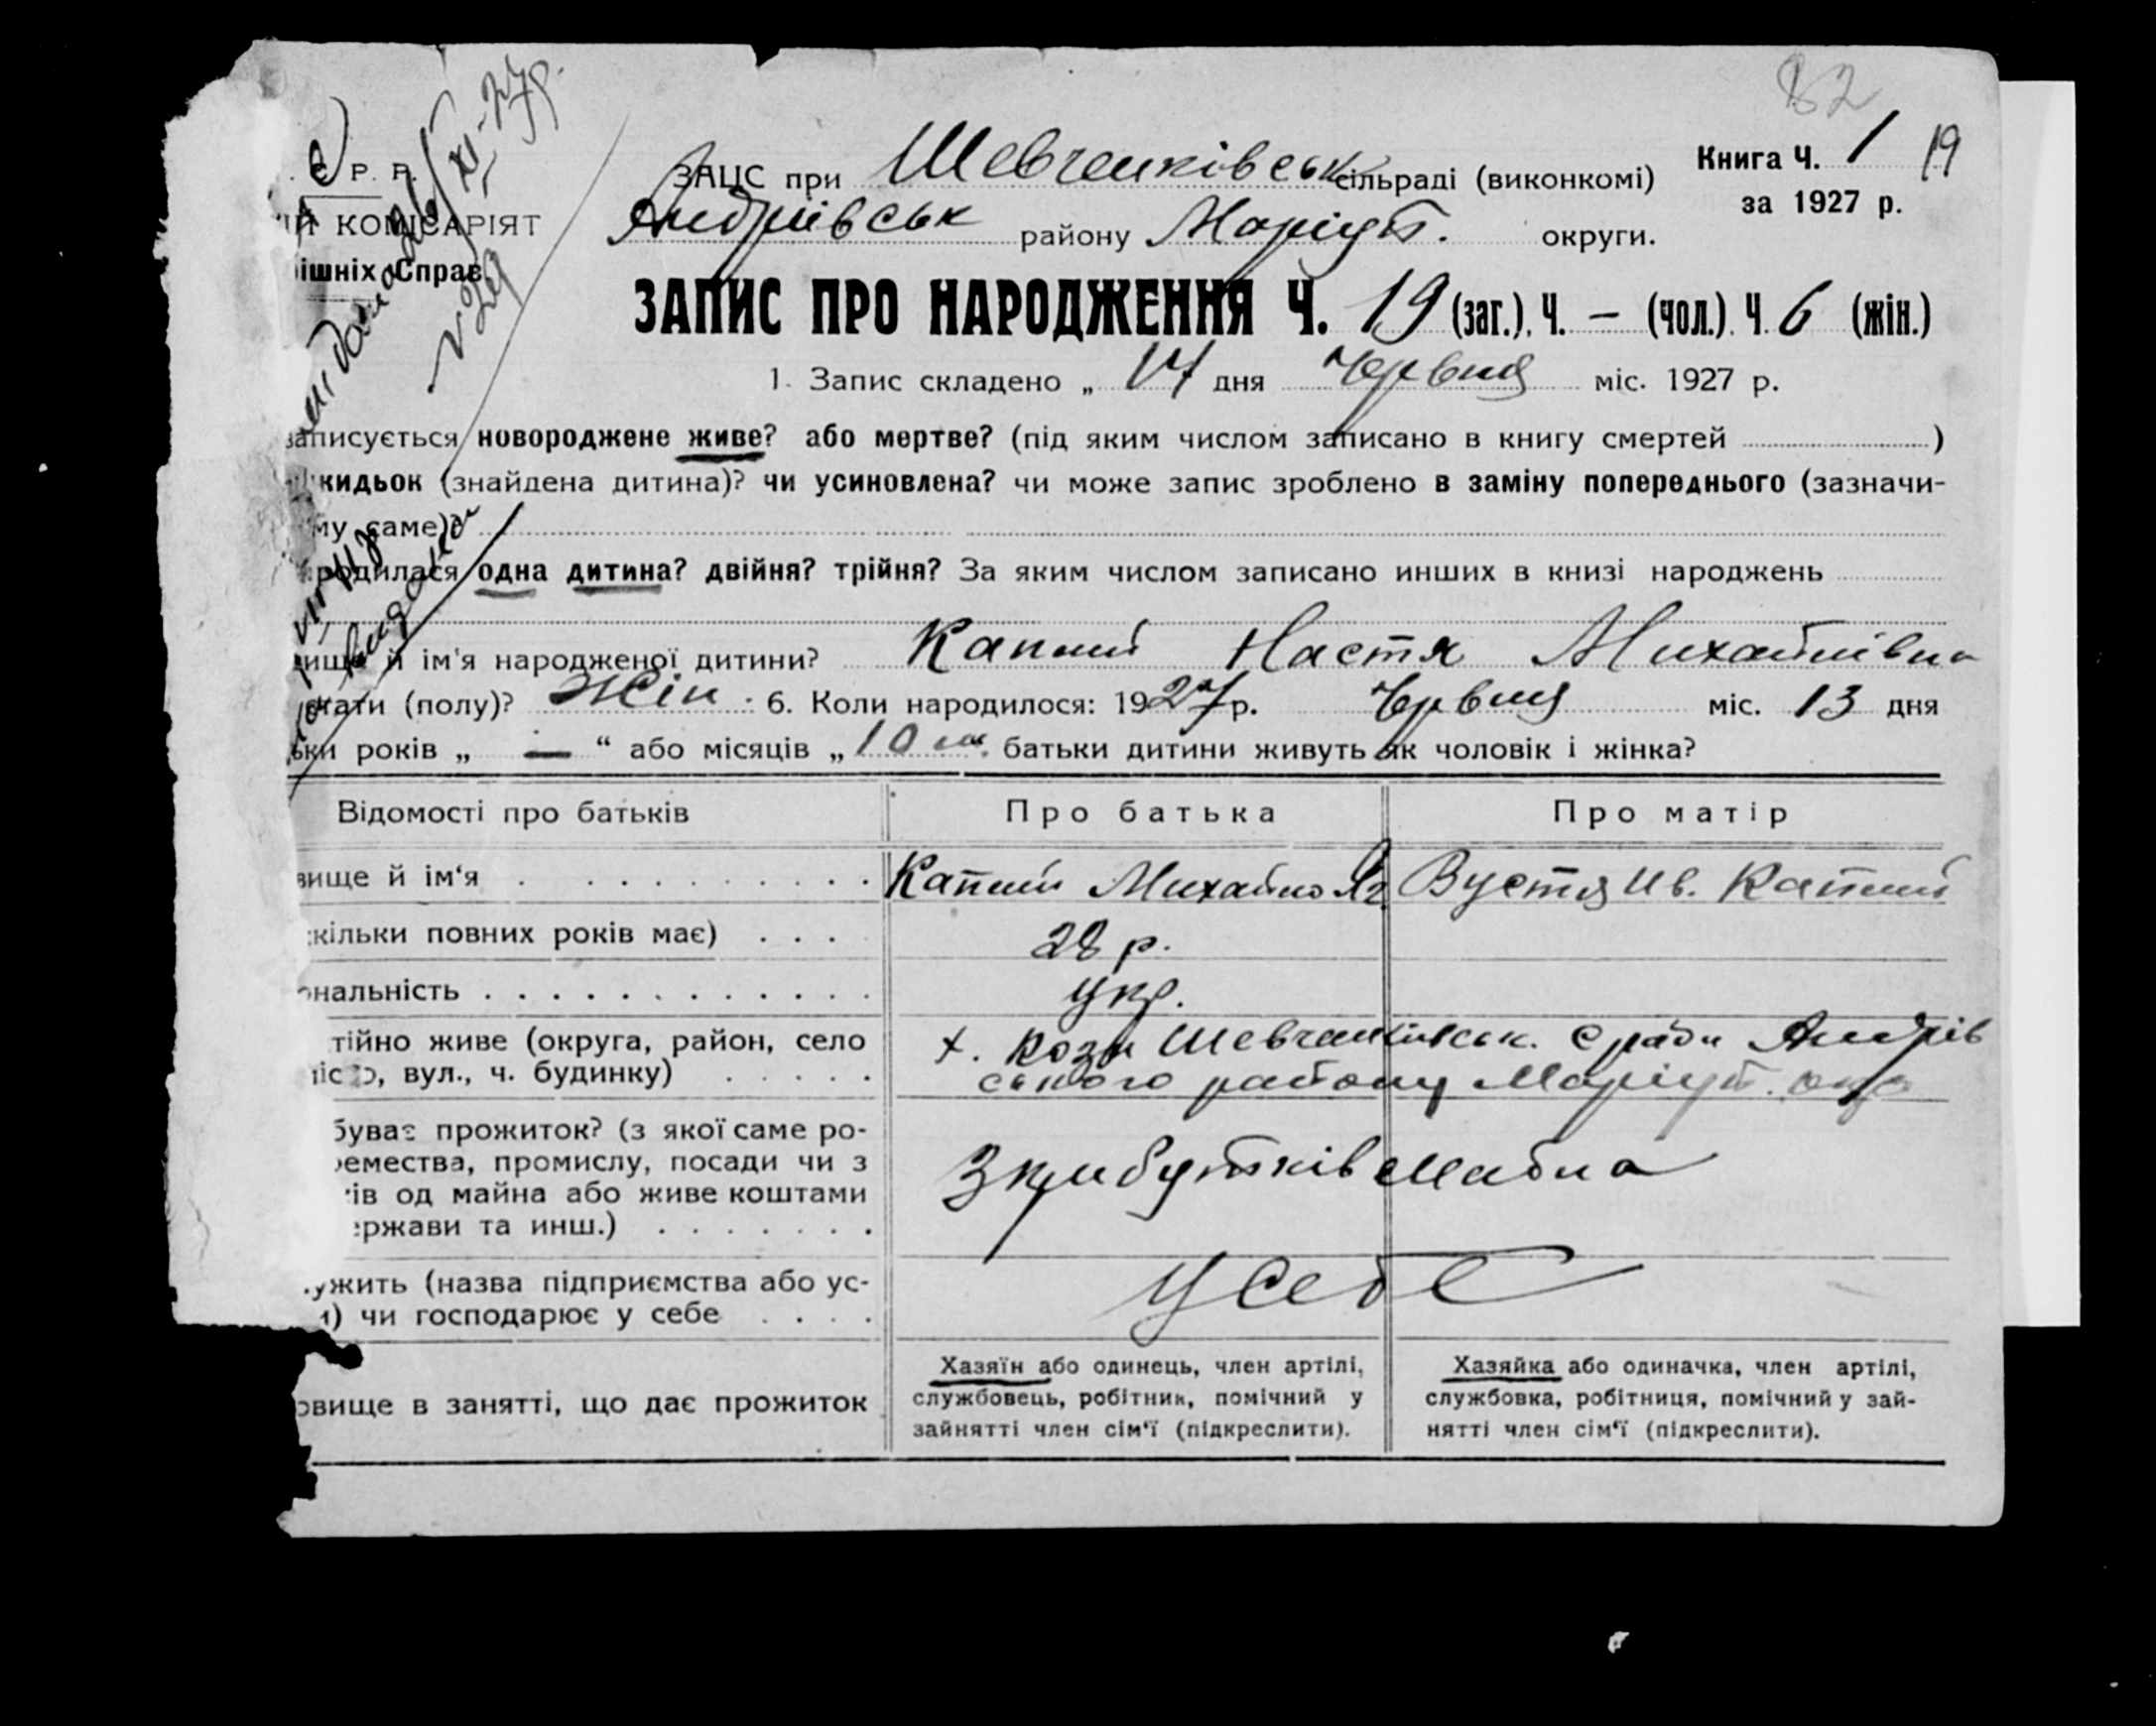 82
. С. Р. Р.
ЗАЦС при Шевченківськ сільраді (виконкомі)
Книга Ч. 1
19
за 1927 р.
ИЙ КОМІСАРІЯТ
Андріївськ району Маріуп. округи.
ішніх Справ
ЗАПИС ПРО НАРОДЖЕННЯ Ч. 19 (заг.), Ч. — (чол.) Ч. 6 (жін.)
1. Запис складено „ 14 дня Червня міс. 1927 р.
записується новороджене живе? або мертве? (під яким числом записано в книгу смертей )
кидьок (знайдена дитина)? чи усиновлена? чи може запис зроблено в заміну попереднього (зазначи-
му саме)?
родилася одна дитина? двійня? трійня? За яким числом записано инших в книзі народжень
вище й ім'я народженої дитини? Капший Настя Михайлівна
стати (полу)? жін. 6. Коли народилося: 1927 р. Червня міс. 13 дня
ьки років „ — “ або місяців „ 10 батьки дитини живуть як чоловік і жінка?
Відомості про батьків Про батька Про матір
вище й ім‘я Капший Михайло Яг. Вустя Ив. Капший
скільки повних років має) 28 р.
ональність укр.
тійно живе (округа, район, село х. Шевченківськ. с ради Андрів
місто, вул., ч. будинку) ського району Маріуп.
буває прожиток? (з якої саме ро-
ремества, промислу, посади чи з З прибутків майна
ків од майна або живе коштами
ержави та инш.)
лужить (назва підприємства або ус- У себе
и) чи господарює у себе
овище в занятті, що дає прожиток
Хазяїн або одинець, член артілі,
службовець, робітник, помічний у
зайнятті член сім‘ї (підкреслити).
Хазяйка або одиначка, член артілі,
службовка, робітниця, помічний у зай-
нятті член сім‘ї (підкреслити).